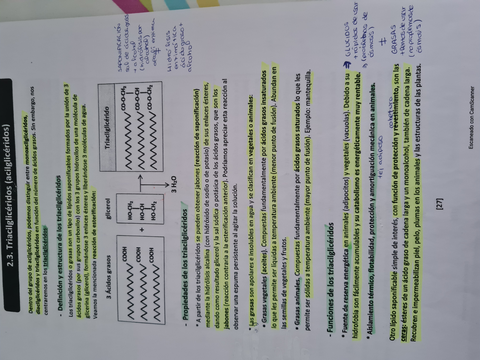 2.3. Triacilglicéridos (acilglicéridos)
Dentro del grupo de acilglicéridos, podemos distinguir entre monoacilglicéridos,
diacilglicéridos y triacilglicéridos en función del número de ácidos grasos. Sin embargo, nos
centraremos en los triacilglicéridos.
- Definición y estructura de los triacilglicéridos
Los triacilglicéridos o grasas son lípidos saponificables formados por la unión de 3
ácidos grasos (por sus grupos carboxilo) con los 3 grupos hidroxilos de una molécula de
glicerina (glicerol), formándose 3 enlaces ésteres y liberándose 3 moléculas de agua.
Veamos la mencionada reacción de esterificación:
3 Ácidos grasos
glicerol
Triacilglicérido
COOH
COOH
COOH
+
HO-CH₂
HO-CH
HO-CH₂
3 H₂O
CO-O-CH₂
CO-O-CH
CO-O-CH₂
- Propiedades de los triacilglicéridos
• A partir de los triacilglicéridos se pueden obtener jabones (reacción de saponificación)
mediante la hidrólisis alcalina (con hidróxido de sodio o de potasio) de sus enlaces ésteres,
dando como resultado glicerol y la sal sódica o potásica de los ácidos grasos, que son los
jabones (reacción inversa a la esterificación anterior). Podríamos apreciar esta reacción al
observar una espuma persistente al agitar la solución.
• Las grasas son apolares e insolubles en agua y se clasifican en vegetales o animales:
• Grasas vegetales (aceites). Compuestas fundamentalmente por ácidos grasos insaturados
lo que les permite ser líquidas a temperatura ambiente (menor punto de fusión). Abundan en
las semillas de vegetales y frutos.
• Grasas animales. Compuestas fundamentalmente por ácidos grasos saturados lo que les
permite ser sólidas a temperatura ambiente (mayor punto de fusión). Ejemplo: mantequilla.
- Funciones de los triacilglicéridos
• Fuentes de reserva energética en animales (adipocitos) y vegetales (vacuolas). Debido a su
hidrofobia son fácilmente acumulables y su catabolismo es energéticamente muy rentable.
• Aislamiento térmico, flotabilidad, protección y amortiguación mecánica en animales.
Otro lípido saponificable simple de interés, con función de protección y revestimiento, son las
ceras: ésteres de un ácido graso de cadena larga y un monoalcohol, también de cadena larga.
Recubren e impermeabilizan piel, pelo, plumas en los animales y las estructuras de las plantas.
[27]
Escaneado con CamScanner
SAPONIFICACIÓN
GLÚCIDOS
GRASAS